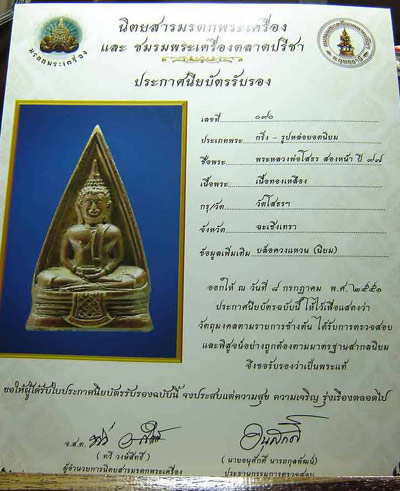 มรดกพระเครื่อง
นิตยสารมรดกพระเครื่อง
และ ชมรมพระเครื่องตลาดปรีชา
ประกาศนียบัตรรับรอง
เลขที่ ๐๙๐
ประเภทพระ กริ่ง - รูปหล่อยอดนิยม
ชื่อพระ พระหลวงพ่อโสธร สองหน้า ปี ๙๗
เนื้อพระ เนื้อทองเหลือง
กรุ/วัด วัดโสธรฯ
จังหวัด ฉะเชิงเทรา
ข้อมูลเพิ่มเติม บล็อควงแหวน (นิยม)
ออกให้ ณ วันที่ ๘ กรกฎาคม พ.ศ. ๒๕๕๑
ประกาศนียบัตรฉบับนี้ ให้ไว้เพื่อแสดงว่า
วัตถุมงคลตามรายการข้างต้น ได้รับการตรวจสอบ
และพิสูจน์อย่างถูกต้องตามมาตรฐานสากลนิยม
จึงขอรับรองว่าเป็นพระแท้
ขอให้ผู้ได้รับใบประกาศนียบัตรรับรองฉบับนี้ จงประสบแต่ความสุข ความเจริญ รุ่งเรืองตลอดไป
จ.ส.ต.
( ทวี วงษ์สิทธิ์ )
ผู้อำนวยการนิตยสารมรดกพระเครื่อง
( นายอนุศักดิ์ นารถกุลพัฒน์ )
ประธานกรรมการตรวจสอบ